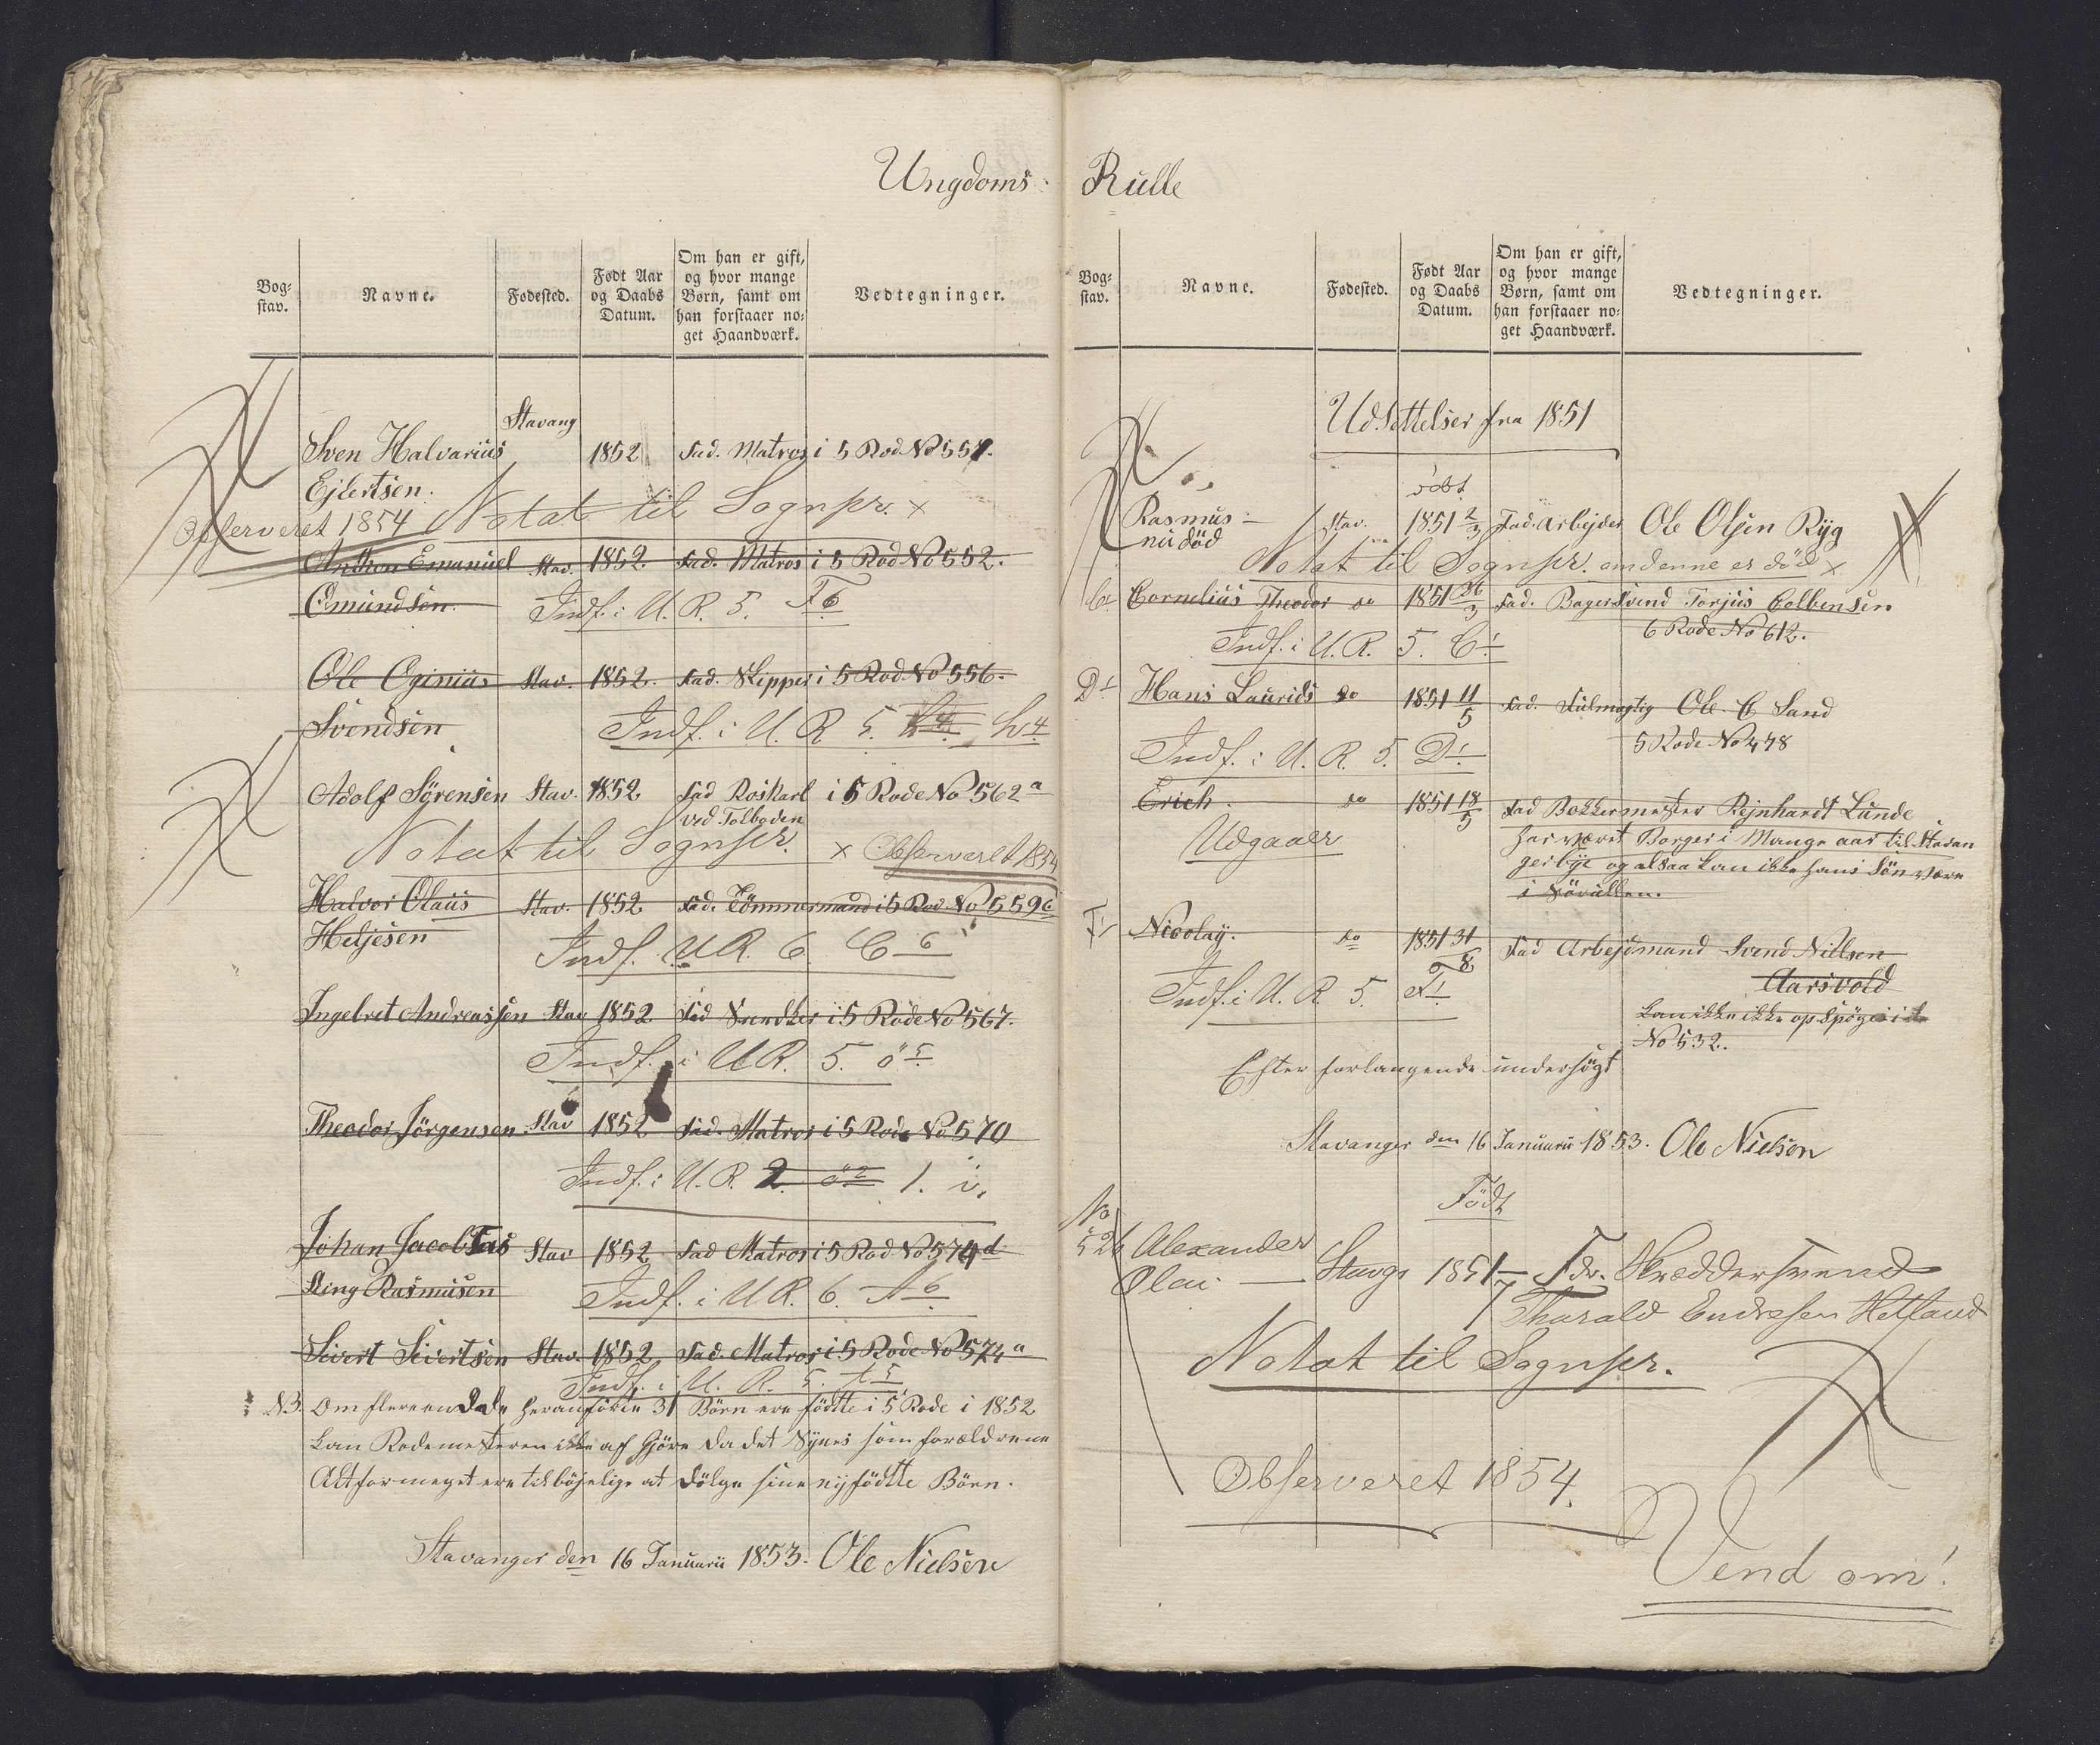 Ungdoms: Rulle
Bog-
stav.
Navne.
Fødested.
Født Aar
og Daabs
Datum.
Om han er gift,
og hvor mange
Børn, samt om
han forstaaer no-
get Haandværk.
Vedtegninger.
Stavang
Sven Halvarius 1852 Fad. Matros i 5 Rod. No 557.
Ejlertsen.
Observeret 1854 Notat til Sognpr. x
Anthon Emanuel Stav. 1852. Fad. Matros i 5 Rod No 552.
Omundsen. Indf. i U. R. 5. F6
Ole Oginius Stav. 1852. Fad. Skipper i 5 Rod No 556.
Svendsen Indf. i U. R 5.
Adolf Sörensen Stav. 1852 Fad Roskarl i 5 Rode No 562 a
ved Tolboden
Notat til Sognpr. x Observeret 1854
Halvor Olaus Stav. 1852 Fad. Tömmermand i 5 Rod No 559 c
Heljesen Indf. U.R. 6 C 6
Ingelvet Andreassen Stav 1852 Fad i 5 Rode No 567.
Indf. i U.R. 5. ö 5
Theodor Jörgensen Stav 1852 Fad. Matros i 5 Rode No 570
Indf. i U. R. 2 ö 2 1. i.
Johan Jacob Tas Stav 1852 Fad Matros i 5 Rod No 574 d
Rasmusen Indf. i U.R. 6. A 6
Sivert Sivertsen Stav. 1852 Fad. Matros i 5 Rode No 574 a
Indf. i U. R. 5.
NB. Om flere end de heranförte 31 Börn ere födtte i 5 Rode i 1852
kan Rodemesteren ikke af Gjöre da det Synes som forældrene
Altformeget ere tilböjelige at dölge sine nyfödtte Börn.
Stavanger den 16 Januarii 1853. Ole Nielsen
Bog-
stav.
Navne.
Fødested.
Født Aar
og Daabs
Datum.
Om han er gift,
og hvor mange
Børn, samt om
han forstaaer no-
get Haandværk.
Vedtegninger.
UdSettelser fra 1851
född
Rasmus Stav. 1851 2/3 Fad. Arbejder Ole Olsen Ryg
nu död
Notat til Sognpr. om denne er död x
Cornelius Theodor do 1851 26/3 Fad. Bagersvend Torjus Colbensen
6 Rode No 612.
Indf. i U. R. 5. C 1
D 1 Hans Laurids do 1851 11/5 Fad. Fulmagtig Ole C Sand
5 Rode No 478
Indf. i U. R. 5. D 1
Erich. do 1851 18/5 Fad Bökkermester Rejnhardt Lunde
Udgaaer har været Borger i Mange aar til Stavan
ger bye og alsaa kan ikke hans Sön være
i Sörullen.
Nicolay. do 1851 31/8 Fad Arbejdmand Svend Nillsen
Aarsvold
Indf. i U. R. 5. F 1
kan ikke ikke opspöges i
No 532.
Efter forlangende undersögt
Stavanger den 16 Januarii 1853. Ole Nielsen
Född
No
526 Alexander
Olai Stavgr 1851 7 Fdr. Skræddersvend
Tharald Endresen Hetland
Notat til Sognpr.
Observeret 1854.
Vend om!